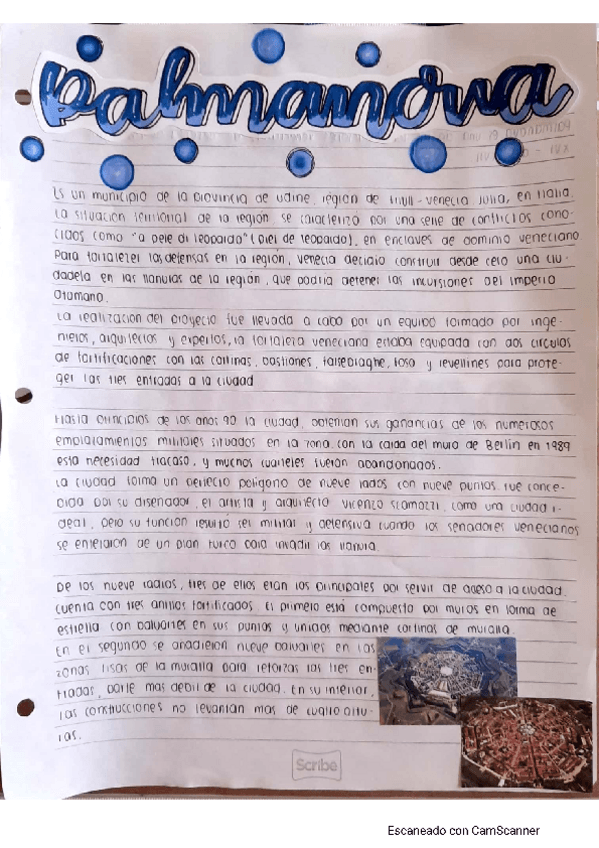 Palmanova
Es un municipio de la provincia de udine, región de friuli-venecia Julia, en Italia.
La situación territorial de la región se caracterizo por una serie de conflictos cono-
cidos como "a pele di leopardo" (piel de leopardo), en enclaves de dominio veneciano.
Para fortalecer las defensas en la región, venecia decidio construir desde cero una ciu-
dadela en las llanuras de la región, que podria detener las incursiones del Imperio
Otomano.
La realizacion del proyecto fue llevada a cabo por un equipo formado por inge-
nieros, arquitectos y expertos, la fortaleza veneciana estaba equipada con dos circulos
de fortificaciones con las cortinas, bastiones, falsebraghe, foso y revellines para prote-
ger las tres entradas a la ciudad
Hasta principios de los años 90 la ciudad, obtenian sus ganancias de los numerosos
emplazamientos militares situados en la zona, con la caida del muro de Berlin en 1989
esta necesidad fracaso, y muchos cuarteles fueron abandonados.
La ciudad forma un perfecto poligono de nueve lados con nueve puntos. fue conce-
bida por su diseñador, el artista y arquitecto vicenzo scamozzi, como una ciudad i-
deal, pero su función resultó ser militar y defensiva cuando los senadores venecianos
se enteraron de un plan turco para invadir las llanura.
De los nueve radios, tres de ellos eran los principales por servir de acceso a la ciudad.
cuenta con tres anillos fortificados. El primero está compuesto por muros en forma de
estrella con baluartes en sus puntos y unidos mediante cortinas de muralla.
En el segundo se añadieron nueve baluartes en las
zonas lisas de la muralla para reforzas las tres en-
tradas, parte mas debil de la ciudad. En su interior,
las construcciones no levantan mas de cuatro altu-
ras.
Scribe
Escaneado con CamScanner